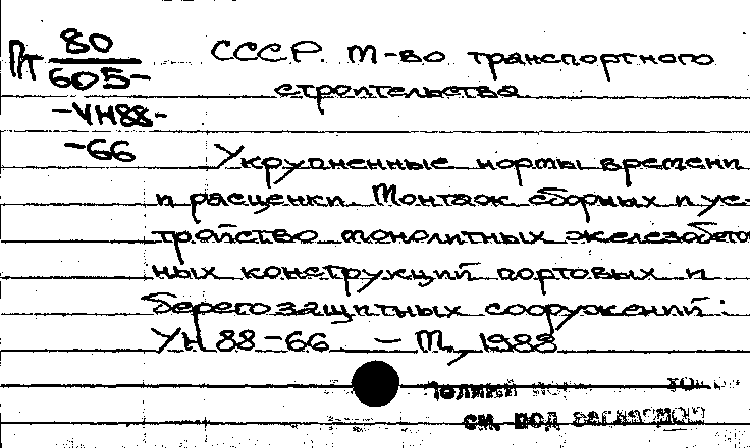 Пт 80
605-
-УН88-
-66
СССР. М-во транспортного
строительства
Укрупненные нормы времени
и расценки. Монтаж сборных и ус-
тройство монолитных железобетон-
ных конструкций портовых и
берегозащитных сооружений:
УН 88-66 — М., 1988
Полный
см. под заглавием